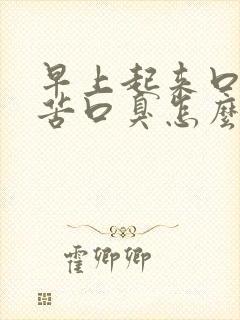 早上起来口
苦口臭怎麼
霍卿卿